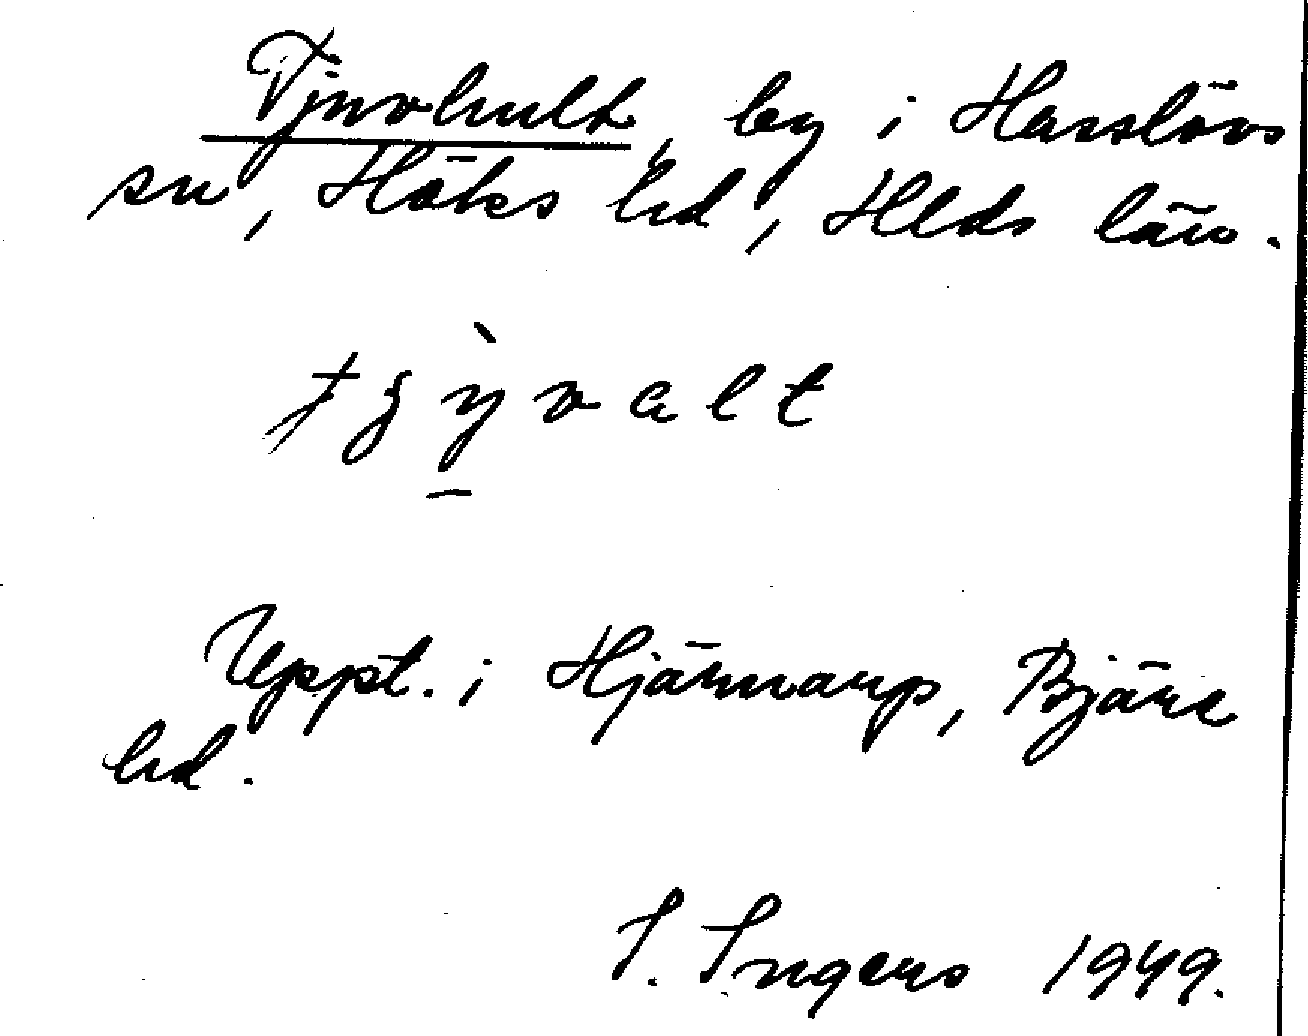 Tjuvhult, by i Hasslövs
sn, Höks hd, Hlds län.
tʒỳvalt
Uppt. i Hjärnarp, Bjäre
hd.
I. Ingers 1949.